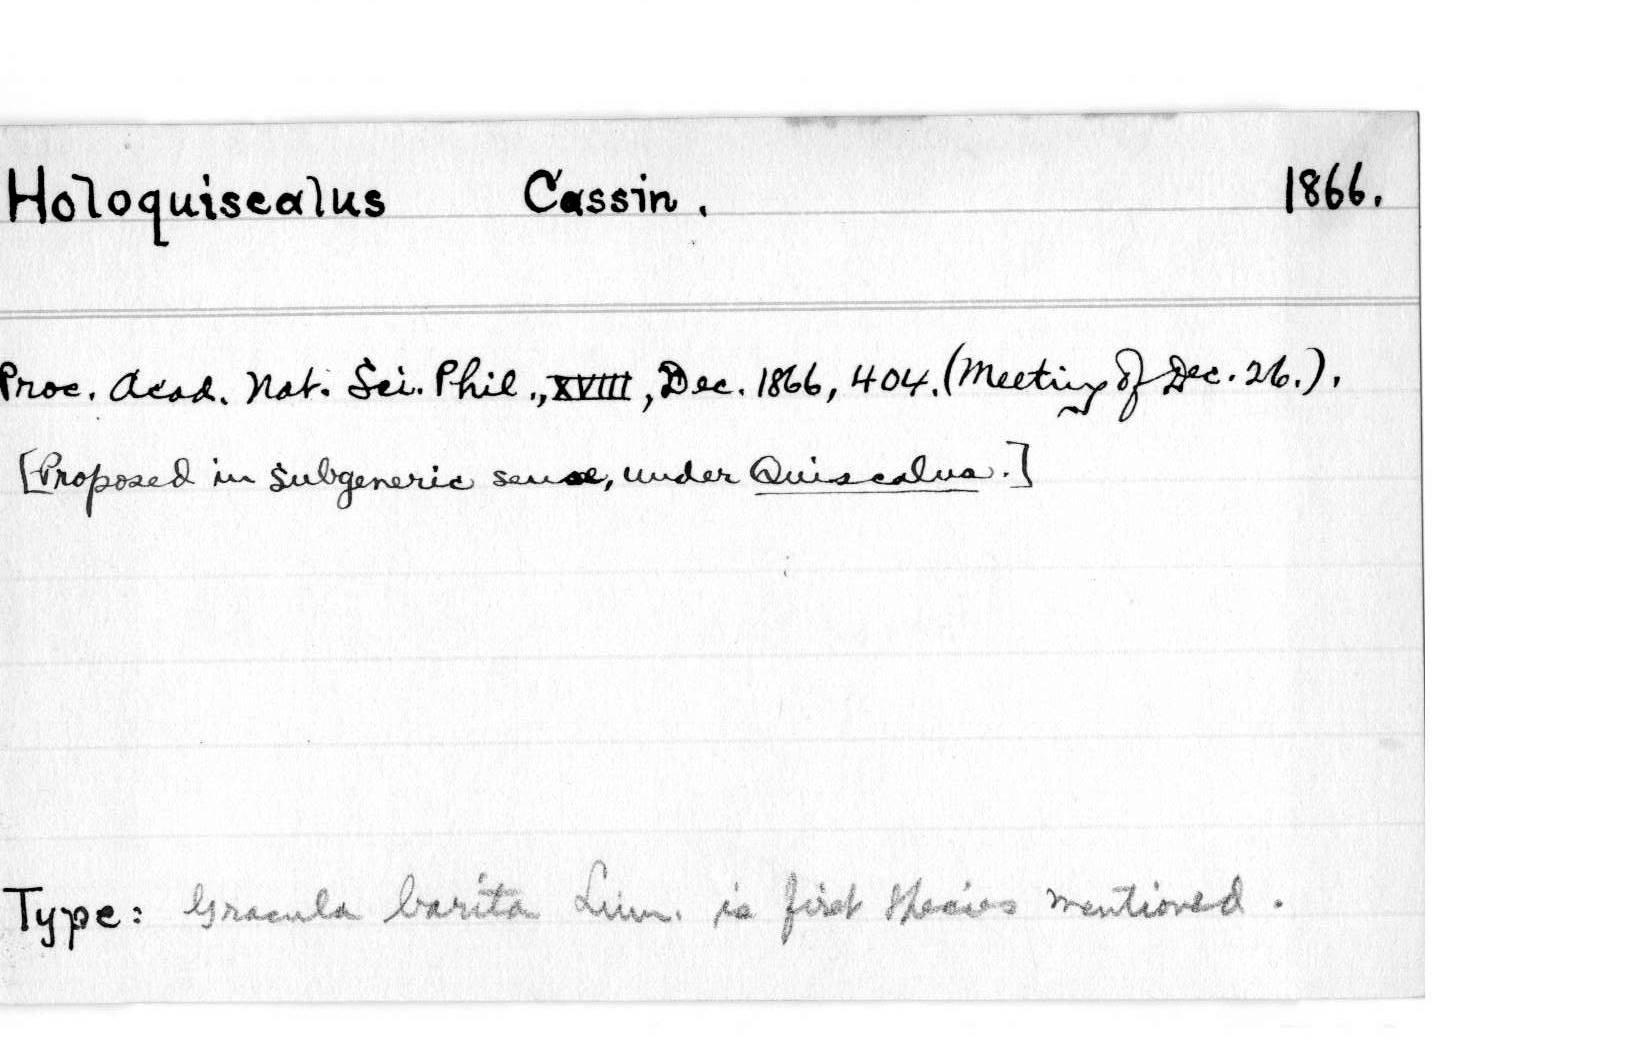 Holoquiscalus Cassin. 1866.
Proc. Acad. Nat. Sci. Phil., XVIII, Dec. 1866, 404. (Meeting of Dec. 26.).
[Proposed in subgeneric sense, under Quiscalus.]
Type: Gracula barita Linn. is first species mentioned.